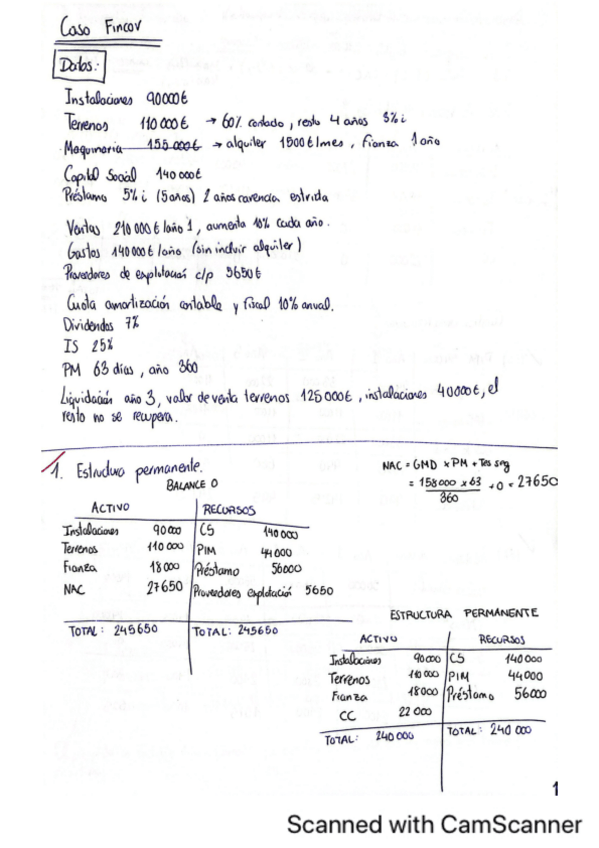 Caso Fincov
Datos:
Instalaciones 90000€
Terrenos 110000€ → 60% contado, resto 4 años 3% i
Maquinaria 155000€ → alquiler 1500€/mes, Fianza 1 año
Capital Social 140000€
Préstamo 5% i (5 años) 2 años carencia estricta
Ventas 210000€/año 1, aumenta 10% cada año.
Gastos 140000€/año (sin incluir alquiler)
Proveedores de explotación c/p 5650€
Cuota amortización contable y fiscal 10% anual.
Dividendos 7%
IS 25%
PM 63 días, año 360
Liquidación año 3, valor de venta terrenos 125000€, instalaciones 40000€, el
resto no se recupera.
1. Estructura permanente.
NAC = GMD x PM + Tes sng
= 158000 x 63 / 360 + 0 = 27650
BALANCE 0
ACTIVO RECURSOS
Instalaciones 90000 CS 140000
Terrenos 110000 PIM 44000
Fianza 18000 Préstamo 56000
NAC 27650 Proveedores explotación 5650
TOTAL: 245650 TOTAL: 245650
ESTRUCTURA PERMANENTE
ACTIVO RECURSOS
Instalaciones 90000 CS 140000
Terrenos 110000 PIM 44000
Fianza 18000 Préstamo 56000
CC 22000
TOTAL: 240000 TOTAL: 240000
1
Scanned with CamScanner